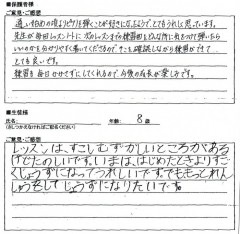 ■保護者様
ご意見・ご感想
通い始めの頃よりピアノを弾くことが好きになったようで、とてもうれしく思っています。
先生が毎日レッスンノートに次のレッスンまでの練習曲をどんな所に気をつけて弾いたら
いいのかを分かりやすく書いてくださるので、そこを確認しながら練習ができて
とても良いです。
練習を毎日かかさずにしてくれるので今後の成長が楽しみです。
■生徒様
氏名: 年齢: 8 歳
ご意見・ご感想
レッスンは、すこしむずかしいところがある
けどたのしいです。いまは、はじめたときよりすご
くじょうずになってうれしいです。でももっとれん
しゅうをしてじょうずになりたいです。